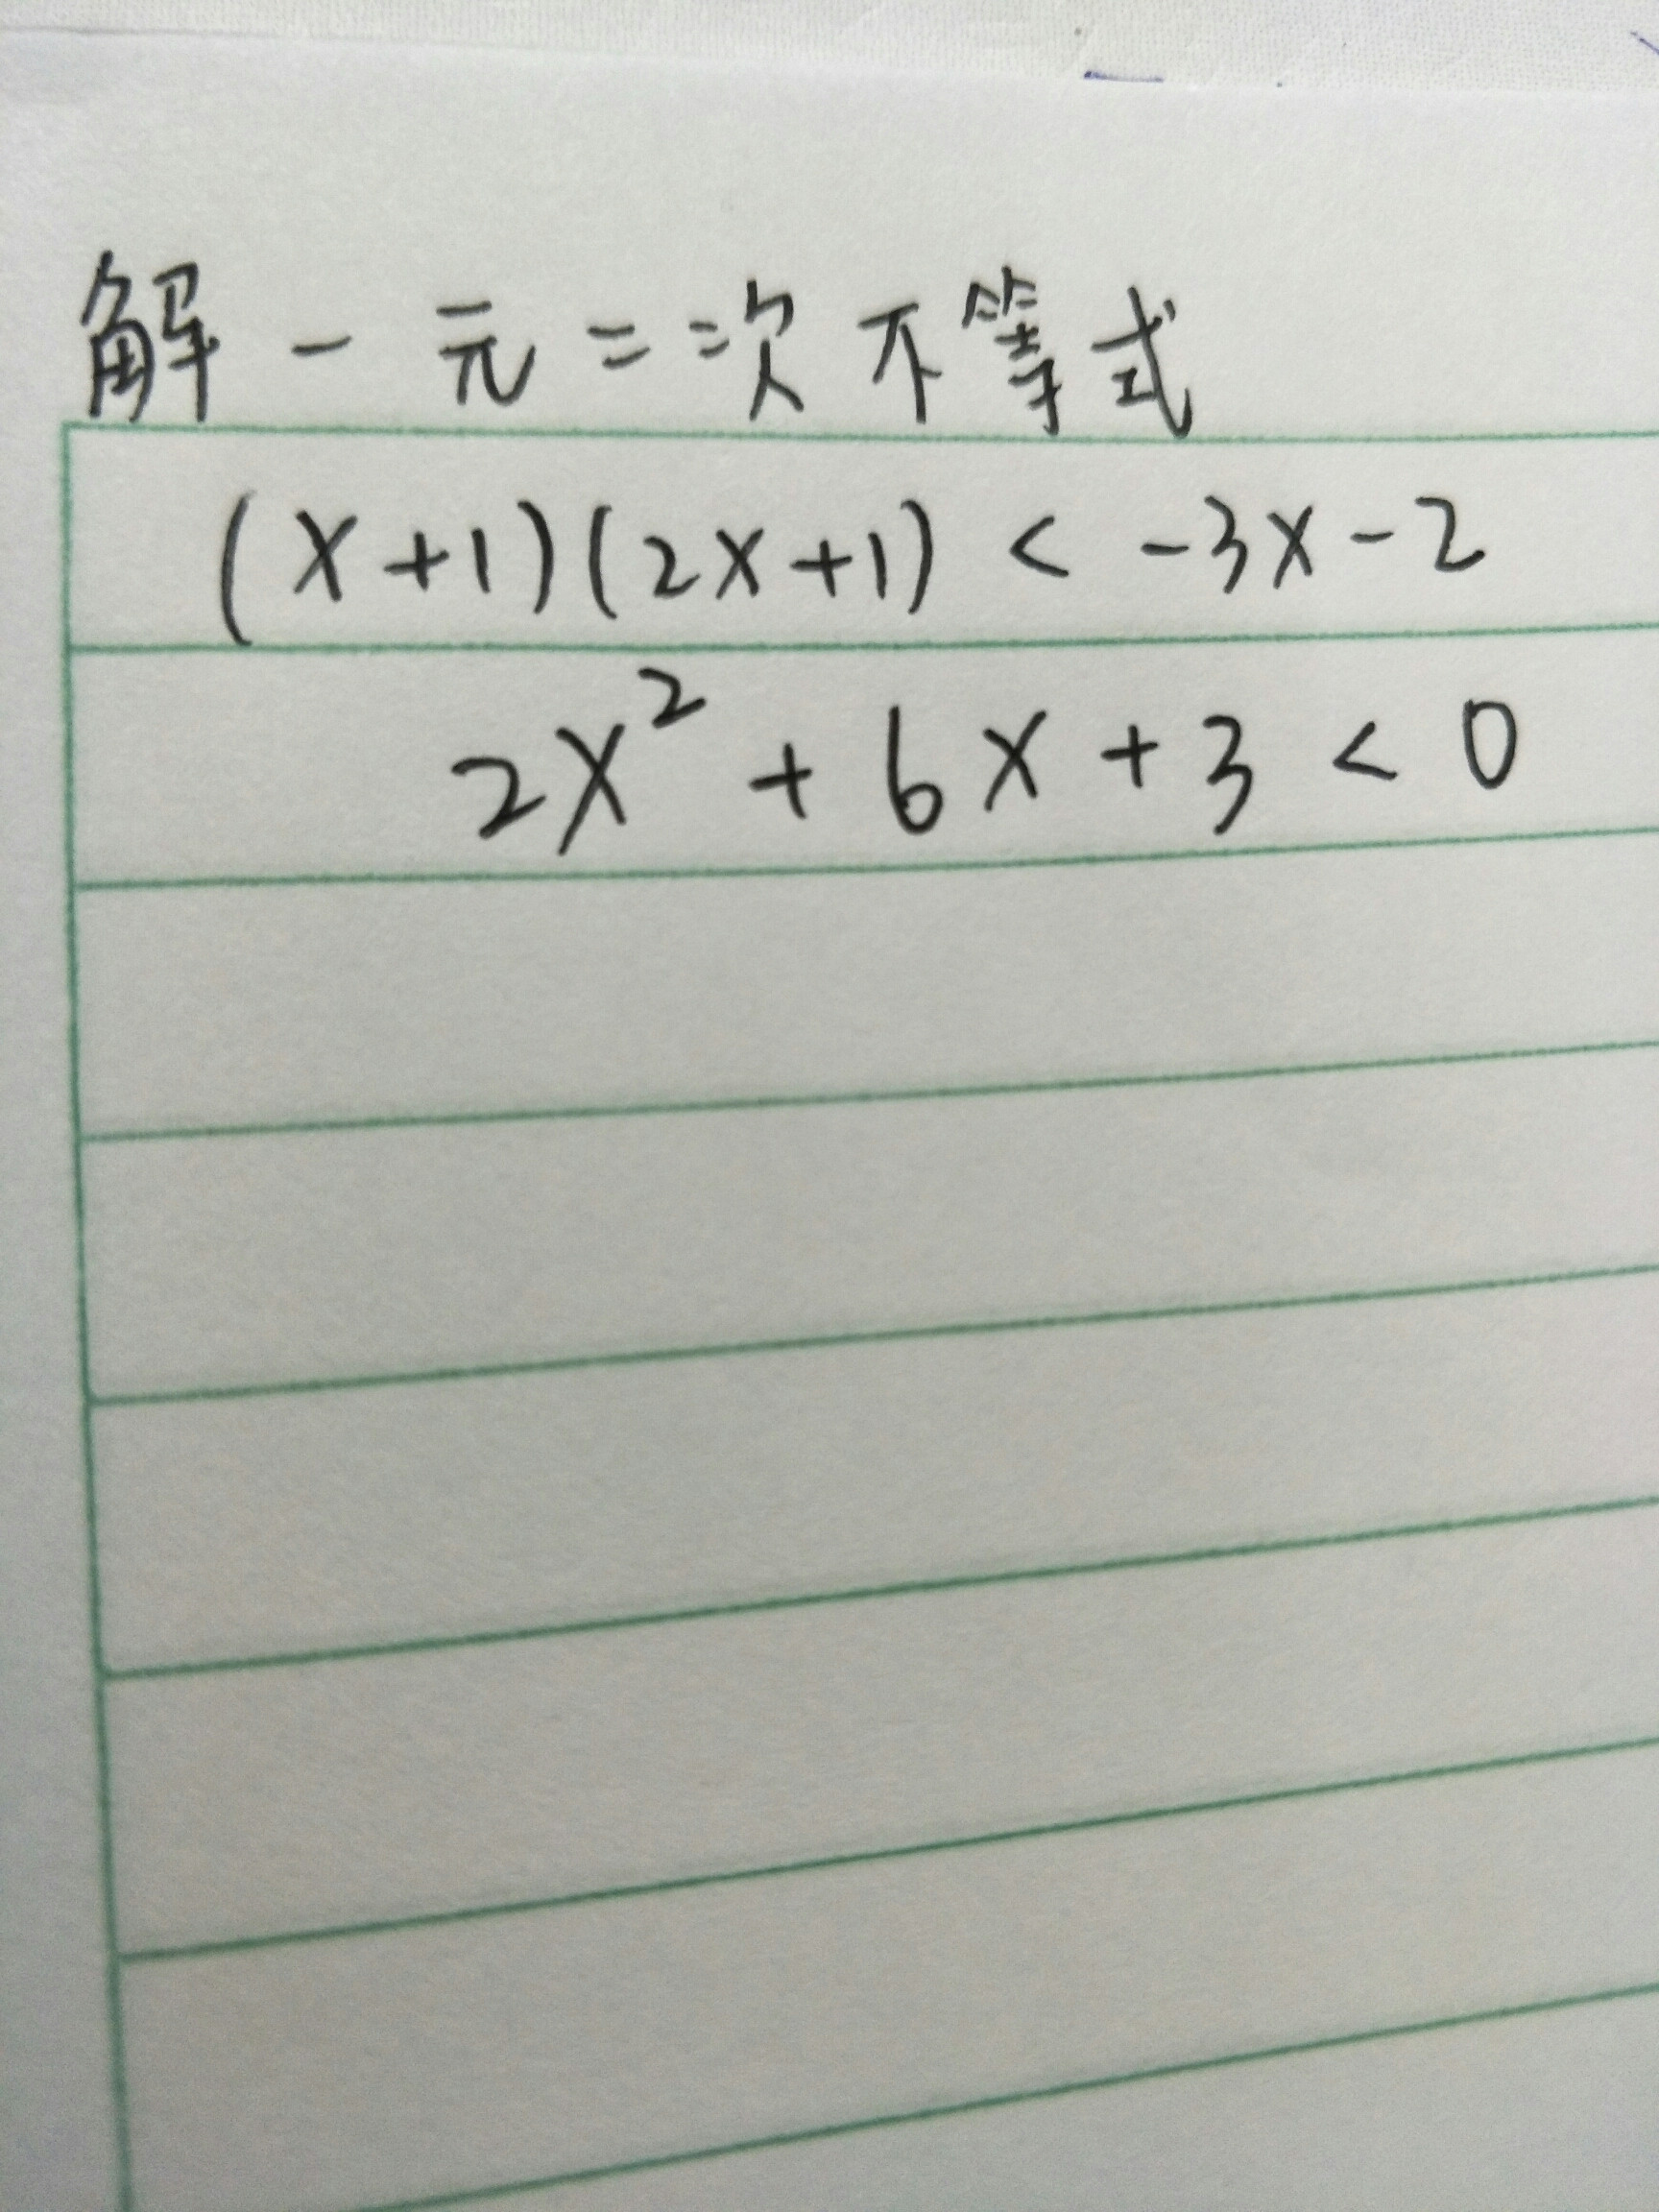 解一元二次不等式
(x+1)(2x+1) < -3x-2
2x² + 6x + 3 < 0